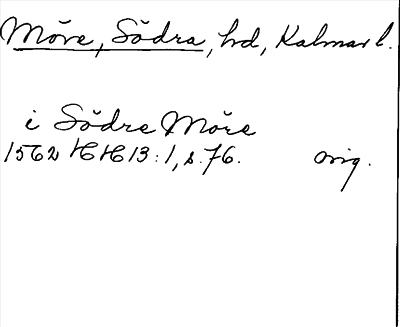 Möre, Södra, hd, Kalmar l.
i Södre Möre
1562 HH 13:1, s. 76. orig.